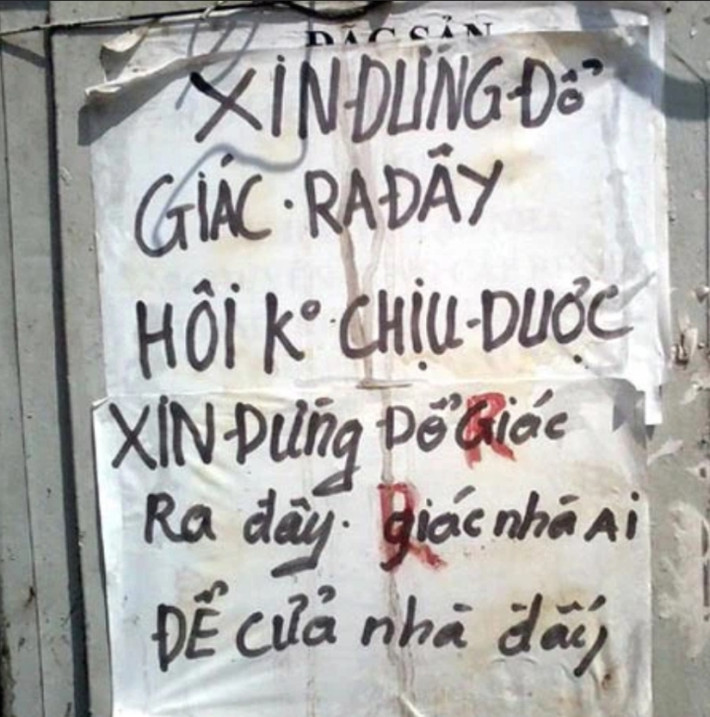 ĐẶC SẢN
XIN ĐỪNG ĐỔ
GIÁC. RA ĐÂY
HÔI Kº CHỊU ĐƯỢC
XIN ĐừNg ĐổGiác
R
Ra đây. giác nhà Ai
R
ĐỂ CỬA nhà đấy